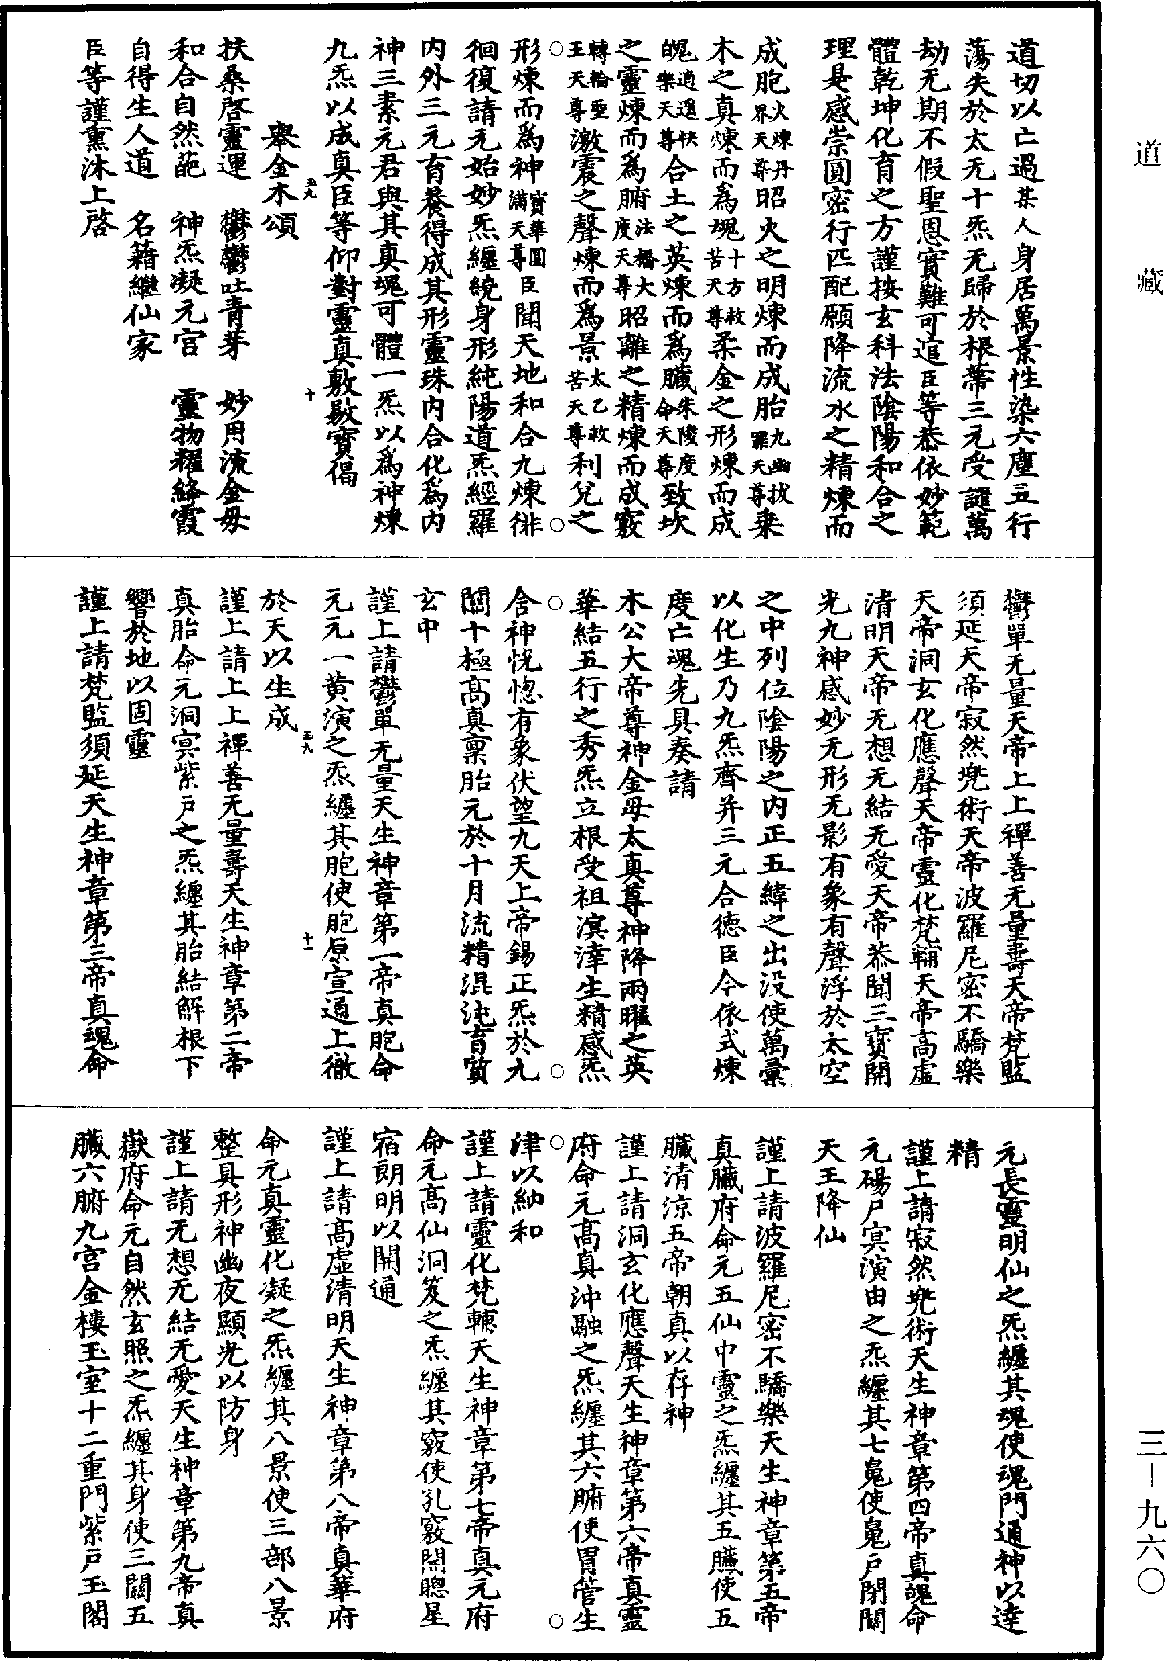 道藏
三—九六〇
道切以亡過某人身居萬景性染六塵五行
蕩失於太无十炁无歸於根蔕三元受譴萬
劫无期不假聖恩實難可追臣等恭依妙範
體乾坤化育之方謹按玄科法陰陽和合之
理是感崇圓密行匹配願降流水之精煉而
成胞火煉丹界天尊昭火之明煉而成胎九幽拔罪天尊乗
木之真煉而爲魂十方救苦天尊柔金之形煉而成
魄逍遥快樂天尊合土之英煉而爲臟朱陵度命天尊致坎
之靈煉而爲腑法橋大度天尊昭離之精煉而成竅
轉輪聖王天尊激震之聲煉而爲景太乙救苦天尊利兌之
形煉而爲神寳華圓滿天尊臣聞天地和合九煉徘
徊復請元始妙炁纏繞身形純陽道炁經羅
内外三元育養得成其形靈珠内合化爲内
神三素元君與其真魂可體一炁以爲神煉
九炁以成真臣等仰對靈真敷敭寳偈
舉金木頌
五九
十
扶桑啓靈運 鬱鬱吐青芽 妙用流金母
和合自然葩 神炁凝元宫 靈物耀絳霞
自得生人道 名籍繼仙家
臣等謹熏沐上啓
鬱單无量天帝上上禪善无量壽天帝梵監
須延天帝寂然兠術天帝波羅尼密不驕樂
天帝洞玄化應聲天帝靈化梵輔天帝高虚
清明天帝无想无結无愛天帝恭聞三寳開
光九神感妙无形无影有象有聲浮於太空
之中列位陰陽之内正五緯之出没使萬彚
以化生乃九炁齊并三元合德臣今依式煉
度亡魂先具奏請
木公大帝尊神金母太真尊神降兩曜之英
華結五行之秀炁立根受祖溟涬生精感炁
含神恍惚有象伏望九天上帝錫正炁於元
關十極高真稟胎元於十月流精混沌育質
玄中
謹上請鬱單无量天生神章第一帝真胞命
元元一黄演之炁纏其胞使胞原宣通上徹
於天以生成
五九
十一
謹上請上上禪善无量壽天生神章第二帝
真胎命元洞冥紫戸之炁纏其胎結解根下
響於地以固靈
謹上請梵監須延天生神章第三帝真魂命
元長靈明仙之炁纏其魂使魂門通神以逹
精
謹上請寂然兠術天生神章第四帝真魄命
元碭尸冥演由之炁纏其七魄使魄户閉關
天王降仙
謹上請波羅尼密不驕樂天生神章第五帝
真臟府命元五仙中靈之炁纏其五臟使五
臟清凉五帝朝真以存神
謹上請洞玄化應聲天生神章第六帝真靈
府命元高真沖融之炁纏其六腑使胃管生
津以納和
謹上請靈化梵輔天生神章第七帝真元府
命元高仙洞笈之炁纏其竅使孔竅開聰星
宿朗明以開通
謹上請高虚清明天生神章第八帝真華府
命元真靈化凝之炁纏其八景使三部八景
整具形神幽夜顯光以防身
謹上請无想无結无愛天生神章第九帝真
嶽府命元自然玄照之炁纏其身使三關五
臟六腑九宫金樓玉室十二重門紫戸玉閣